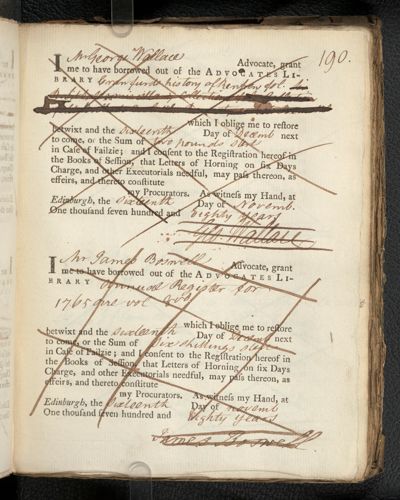 190.
I Mr George Wallace Advocate, grant
me to have borrowed out of the ADVOCATES LI-
BRARY Craufurds history of Renfrew fol.
which I oblige me to restore
betwixt and the sixteenth Day of Decemb next
to come, or the Sum of two pounds sterl
in Case of Failzie; and I consent to the Registration hereof in
the Books of Session, that Letters of Horning on six Days
Charge, and other Executorials needful, may pass thereon, as
effeirs, and thereto constitute
my Procurators. As witness my Hand, at
Edinburgh, the sixteenth Day of Novemb.
One thousand seven hundred and Eighty Years
Geo. Wallace
I Mr James Boswell Advocate, grant
me to have borrowed out of the ADVOCATES LI-
BRARY Annual Register for
1765 one vol 8vo
which I oblige me to restore
betwixt and the sixteenth Day of Decemb next
to come, or the Sum of six shillings sterl
in Case of Failzie; and I consent to the Registration hereof in
the Books of Session, that Letters of Horning on six Days
Charge, and other Executorials needful, may pass thereon, as
effeirs, and thereto constitute
my Procurators. As witness my Hand, at
Edinburgh, the sixteenth Day of novemb
One thousand seven hundred and Eighty Years
James Boswell